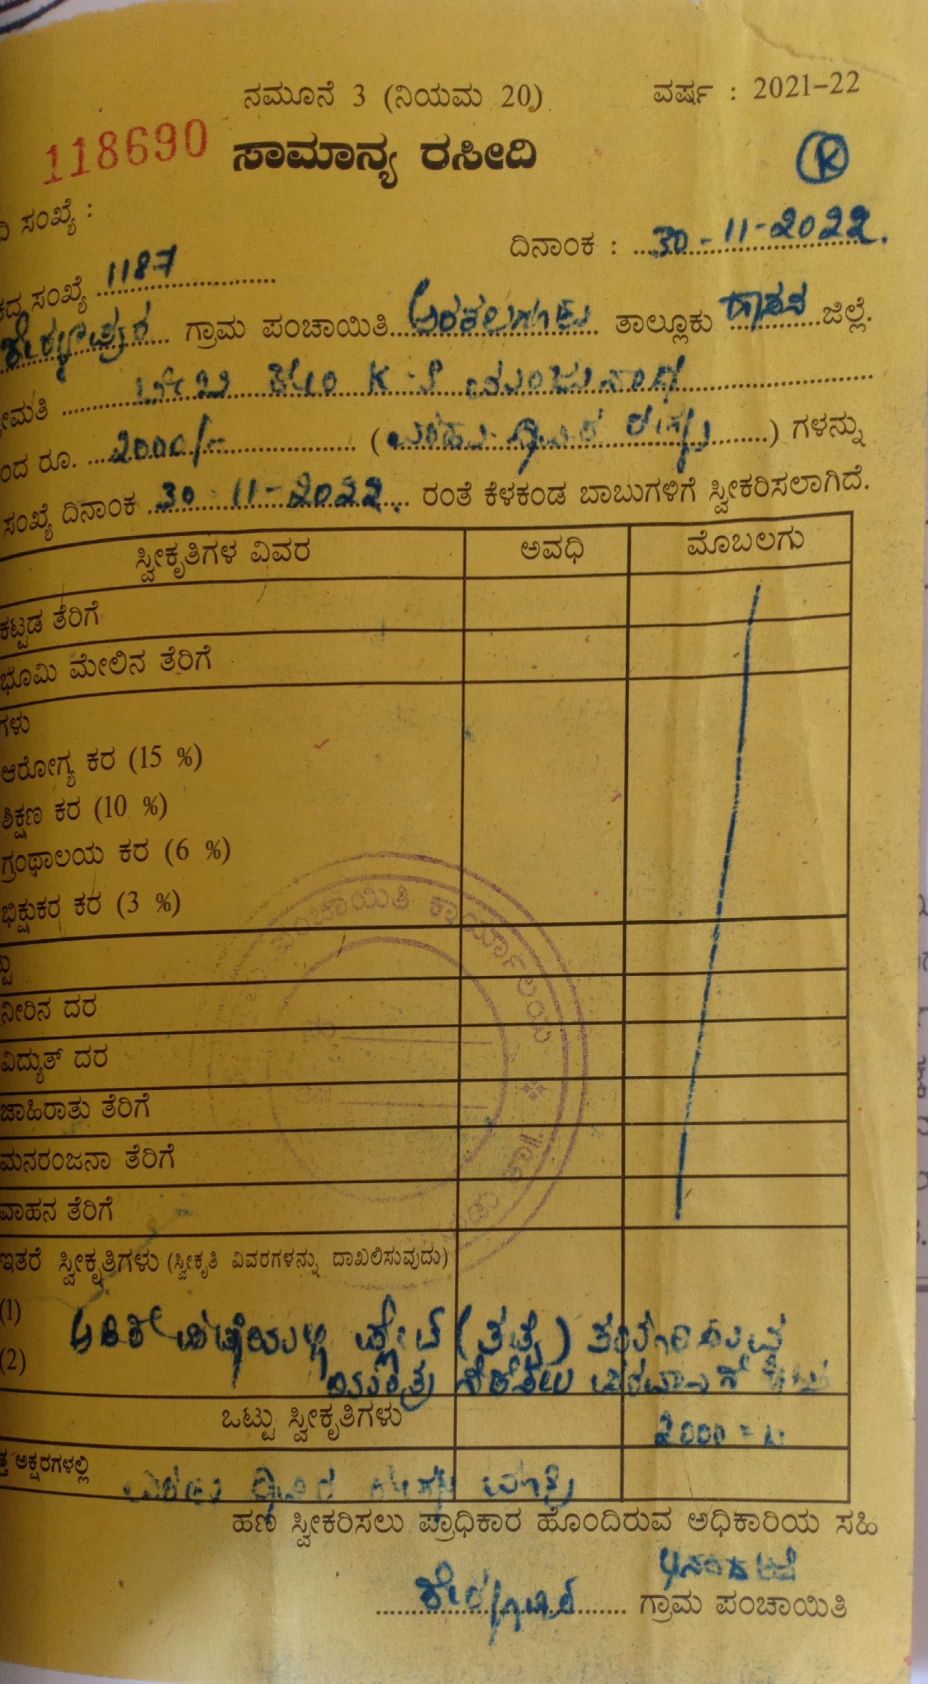 ನಮೂನೆ 3 (ನಿಯಮ 20) ವರ್ಷ : 2021-22
118690 ಸಾಮಾನ್ಯ ರಸೀದಿ
R
ಸಂಖ್ಯೆ :
ದಿನಾಂಕ : 30-11-2022.
ಸಂಖ್ಯೆ 1187
ಗ್ರಾಮ ಪಂಚಾಯಿತಿ ಅರಕಲಗೂಡು ತಾಲ್ಲೂಕು ಹಾಸನ ಜಿಲ್ಲೆ.
ಬೇಬಿ ಕೋಂ K.ಸಿ ಮಂಜುನಾಥ
ಂದ ರೂ. 2000/- (ಎರಡು ಸಾವಿರ ರೂಪಾಯಿ) ಗಳನ್ನು
ಸಂಖ್ಯೆ ದಿನಾಂಕ 30-11-2022. ರಂತೆ ಕೆಳಕಂಡ ಬಾಬುಗಳಿಗೆ ಸ್ವೀಕರಿಸಲಾಗಿದೆ.
ಸ್ವೀಕೃತಿಗಳ ವಿವರ ಅವಧಿ ಮೊಬಲಗು
ಕಟ್ಟಡ ತೆರಿಗೆ
ಭೂಮಿ ಮೇಲಿನ ತೆರಿಗೆ
ಗಳು
ಆರೋಗ್ಯ ಕರ (15 %)
ಶಿಕ್ಷಣ ಕರ (10 %)
ಗ್ರಂಥಾಲಯ ಕರ (6 %)
ಭಿಕ್ಷುಕರ ಕರ (3 %)
ನೀರಿನ ದರ
ವಿದ್ಯುತ್ ದರ
ಜಾಹಿರಾತು ತೆರಿಗೆ
ಮನರಂಜನಾ ತೆರಿಗೆ
ವಾಹನ ತೆರಿಗೆ
ಇತರೆ ಸ್ವೀಕೃತಿಗಳು (ಸ್ವೀಕೃತಿ ವಿವರಗಳನ್ನು ದಾಖಲಿಸುವುದು)
(1)
(2)
ಒಟ್ಟು ಸ್ವೀಕೃತಿಗಳು 2000=00
ಅಕ್ಷರಗಳಲ್ಲಿ ಎರಡು ಸಾವಿರ ರೂಪಾಯಿ ಮಾತ್ರ
ಹಣ ಸ್ವೀಕರಿಸಲು ಪ್ರಾಧಿಕಾರ ಹೊಂದಿರುವ ಅಧಿಕಾರಿಯ ಸಹಿ
ಗ್ರಾಮ ಪಂಚಾಯಿತಿ
ಪಂಚಾಯಿತಿ ಕಾರ್ಯಾಲಯ